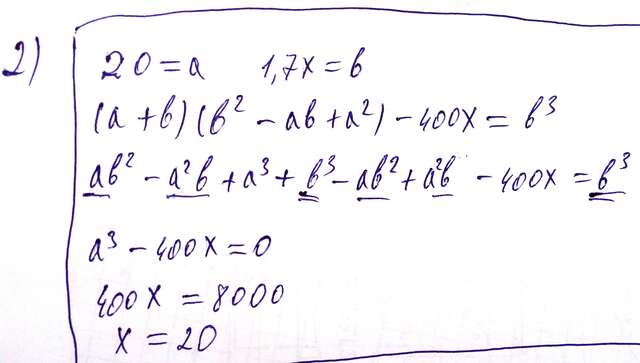 2) 20 = a 1,7x = b
(a + b)(b² - ab + a²) - 400x = b³
ab² - a²b + a³ + b³ - ab² + a²b - 400x = b³
a³ - 400x = 0
400x = 8000
x = 20